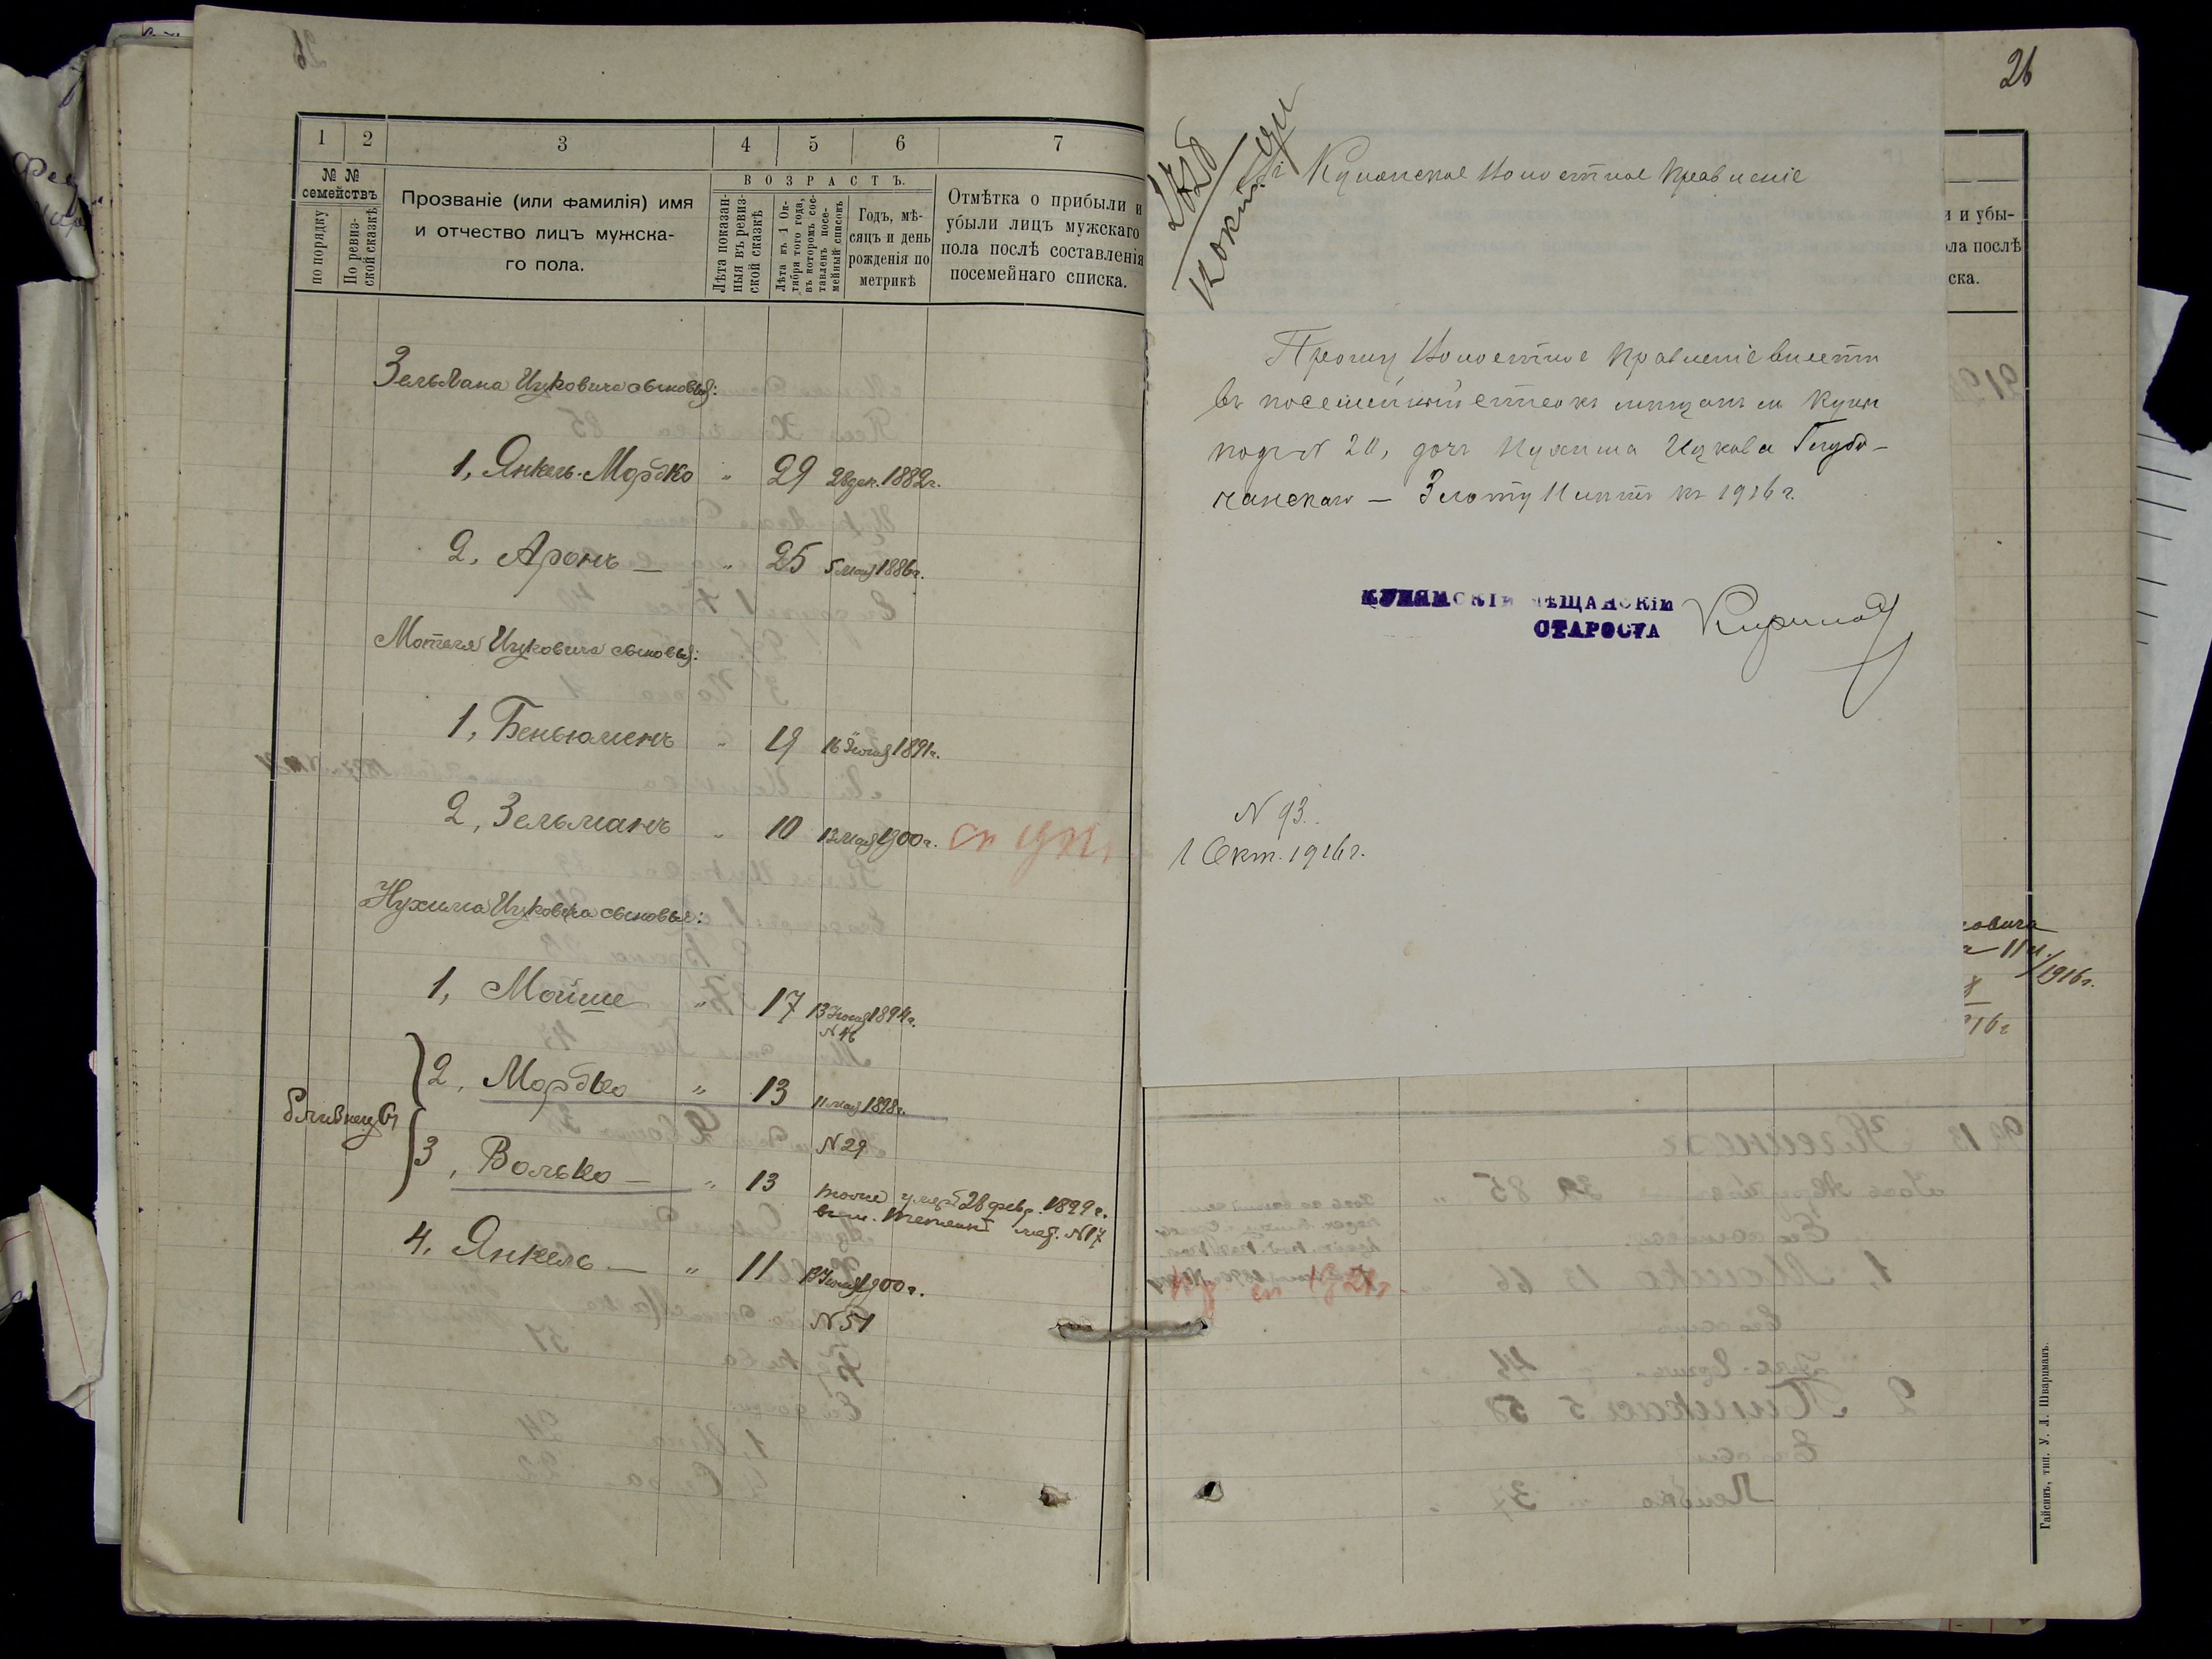 26
1 2 3 4 5 6 7
№ №
семействъ
по порядку
По ревиз-
ской сказкѣ
Прозваніе (или фамилія) имя
и отчество лицъ мужска-
го пола.
ВОЗРАСТЪ.
Лѣта показан-
ныя въ ревиз-
ской сказкѣ
Лѣта къ 1 Ок-
тября того года,
въ которомъ сос-
тавленъ посе-
мейный списокъ
Годъ, мѣ-
сяцъ и день
рожденія по
метрикѣ
Отмѣтка о прибыли и
убыли лицъ мужскаго
пола послѣ составленія
посемейнаго списка.
Зельмана Ицковича сыновья:
1, Янкель-Мордко " 29 28 дек. 1882г.
2, Аронъ — " 25 5 мая 1886г.
Мотеля Ицковича сыновья:
1, Беньюменъ " 19 16 Іюля 1891г.
2, Зельманъ " 10 12 мая 1900г.
Нухима Ицковича сыновья:
1, Мойше " 17 13 Іюля 1894г.
N 46
2, Мордко " 13 11 мая 1898г.
близнецы
N 29
3, Волько — " 13 тоже умеръ 28 февр. 1899г.
N 17
4, Янкель — " 11 13 Іюля 1900г.
N 51
Кунянское Волостное Правленіе
Прошу Волостное Правленіе внести
въ посемейный списокъ мещанъ м Куни
подъ N 20, дочь Нухима Ицкова Глубо-
чанскаго — Злоту 11 лѣтъ къ 1916 г.
КУНЯНСКІЙ МѢЩАНСКІЙ
СТАРОСТА
N 93.
1 Окт. 1916 г.
и и убы-
ола послѣ
ска.
овича
11 л.
/1916г.
Гайсинъ, тип. У. Л. Шварцманъ.